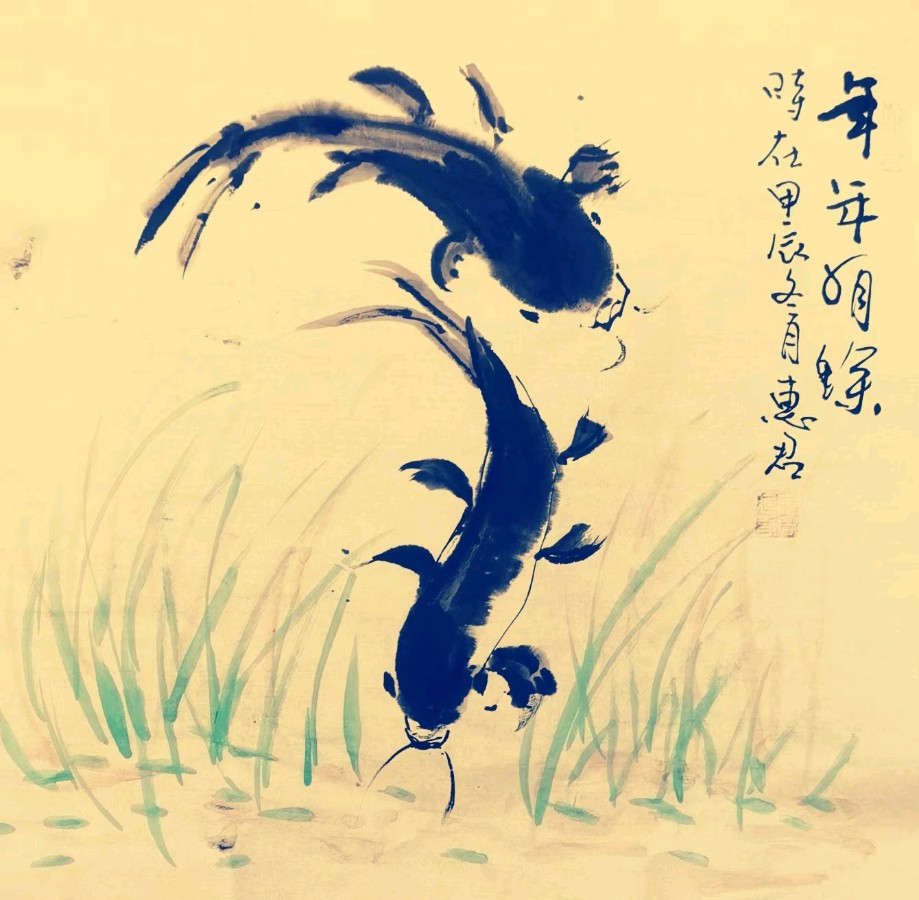 年年有餘
時在甲辰冬月惠君